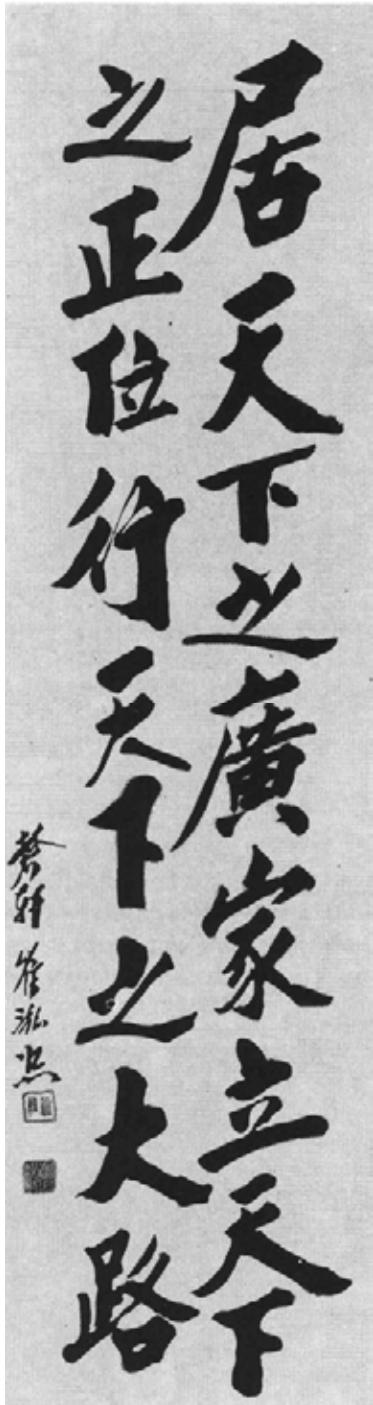 居天下之廣家立天下
之正位行天下之大路
軒 崔泓熙